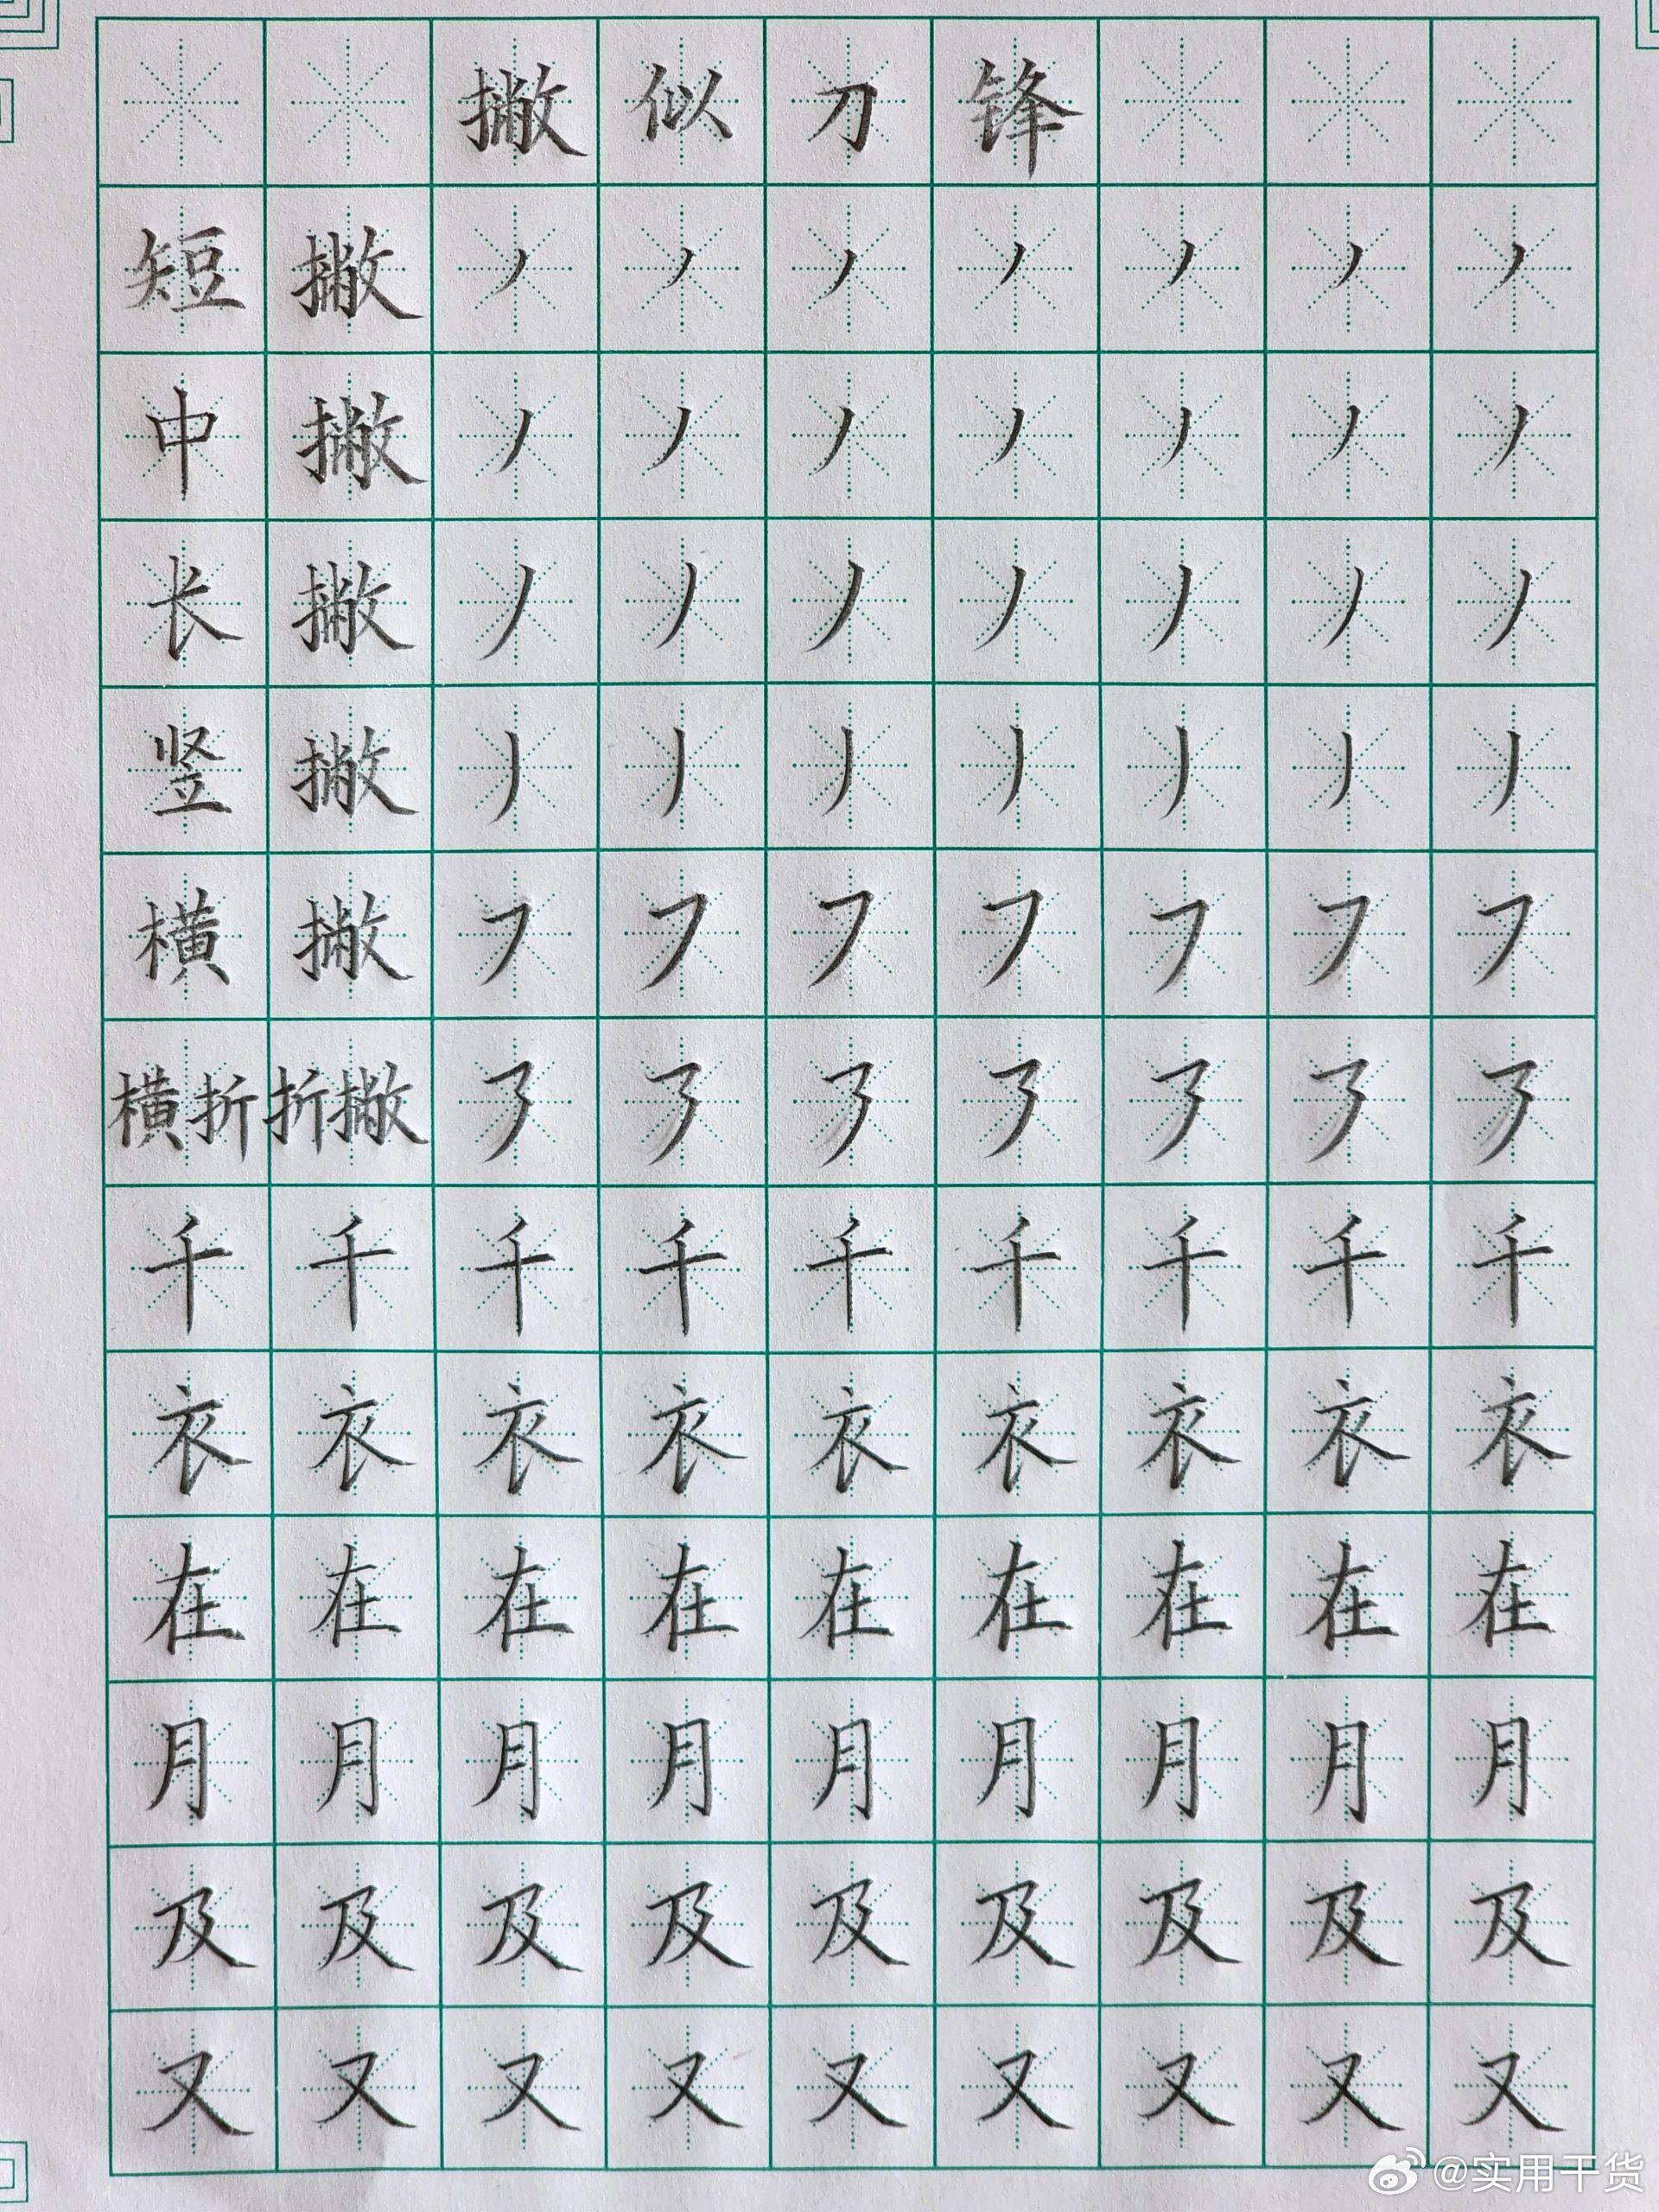 撇似刀锋
短撇丿丿丿丿丿丿丿
中撇丿丿丿丿丿丿丿
长撇丿丿丿丿丿丿丿
竖撇丿丿丿丿丿丿丿
横撇㇇㇇㇇㇇㇇㇇㇇
横折折撇㇋㇋㇋㇋㇋㇋㇋
千千千千千千千千千
衣衣衣衣衣衣衣衣衣
在在在在在在在在在
月月月月月月月月月
及及及及及及及及及
又又又又又又又又又
@实用干货